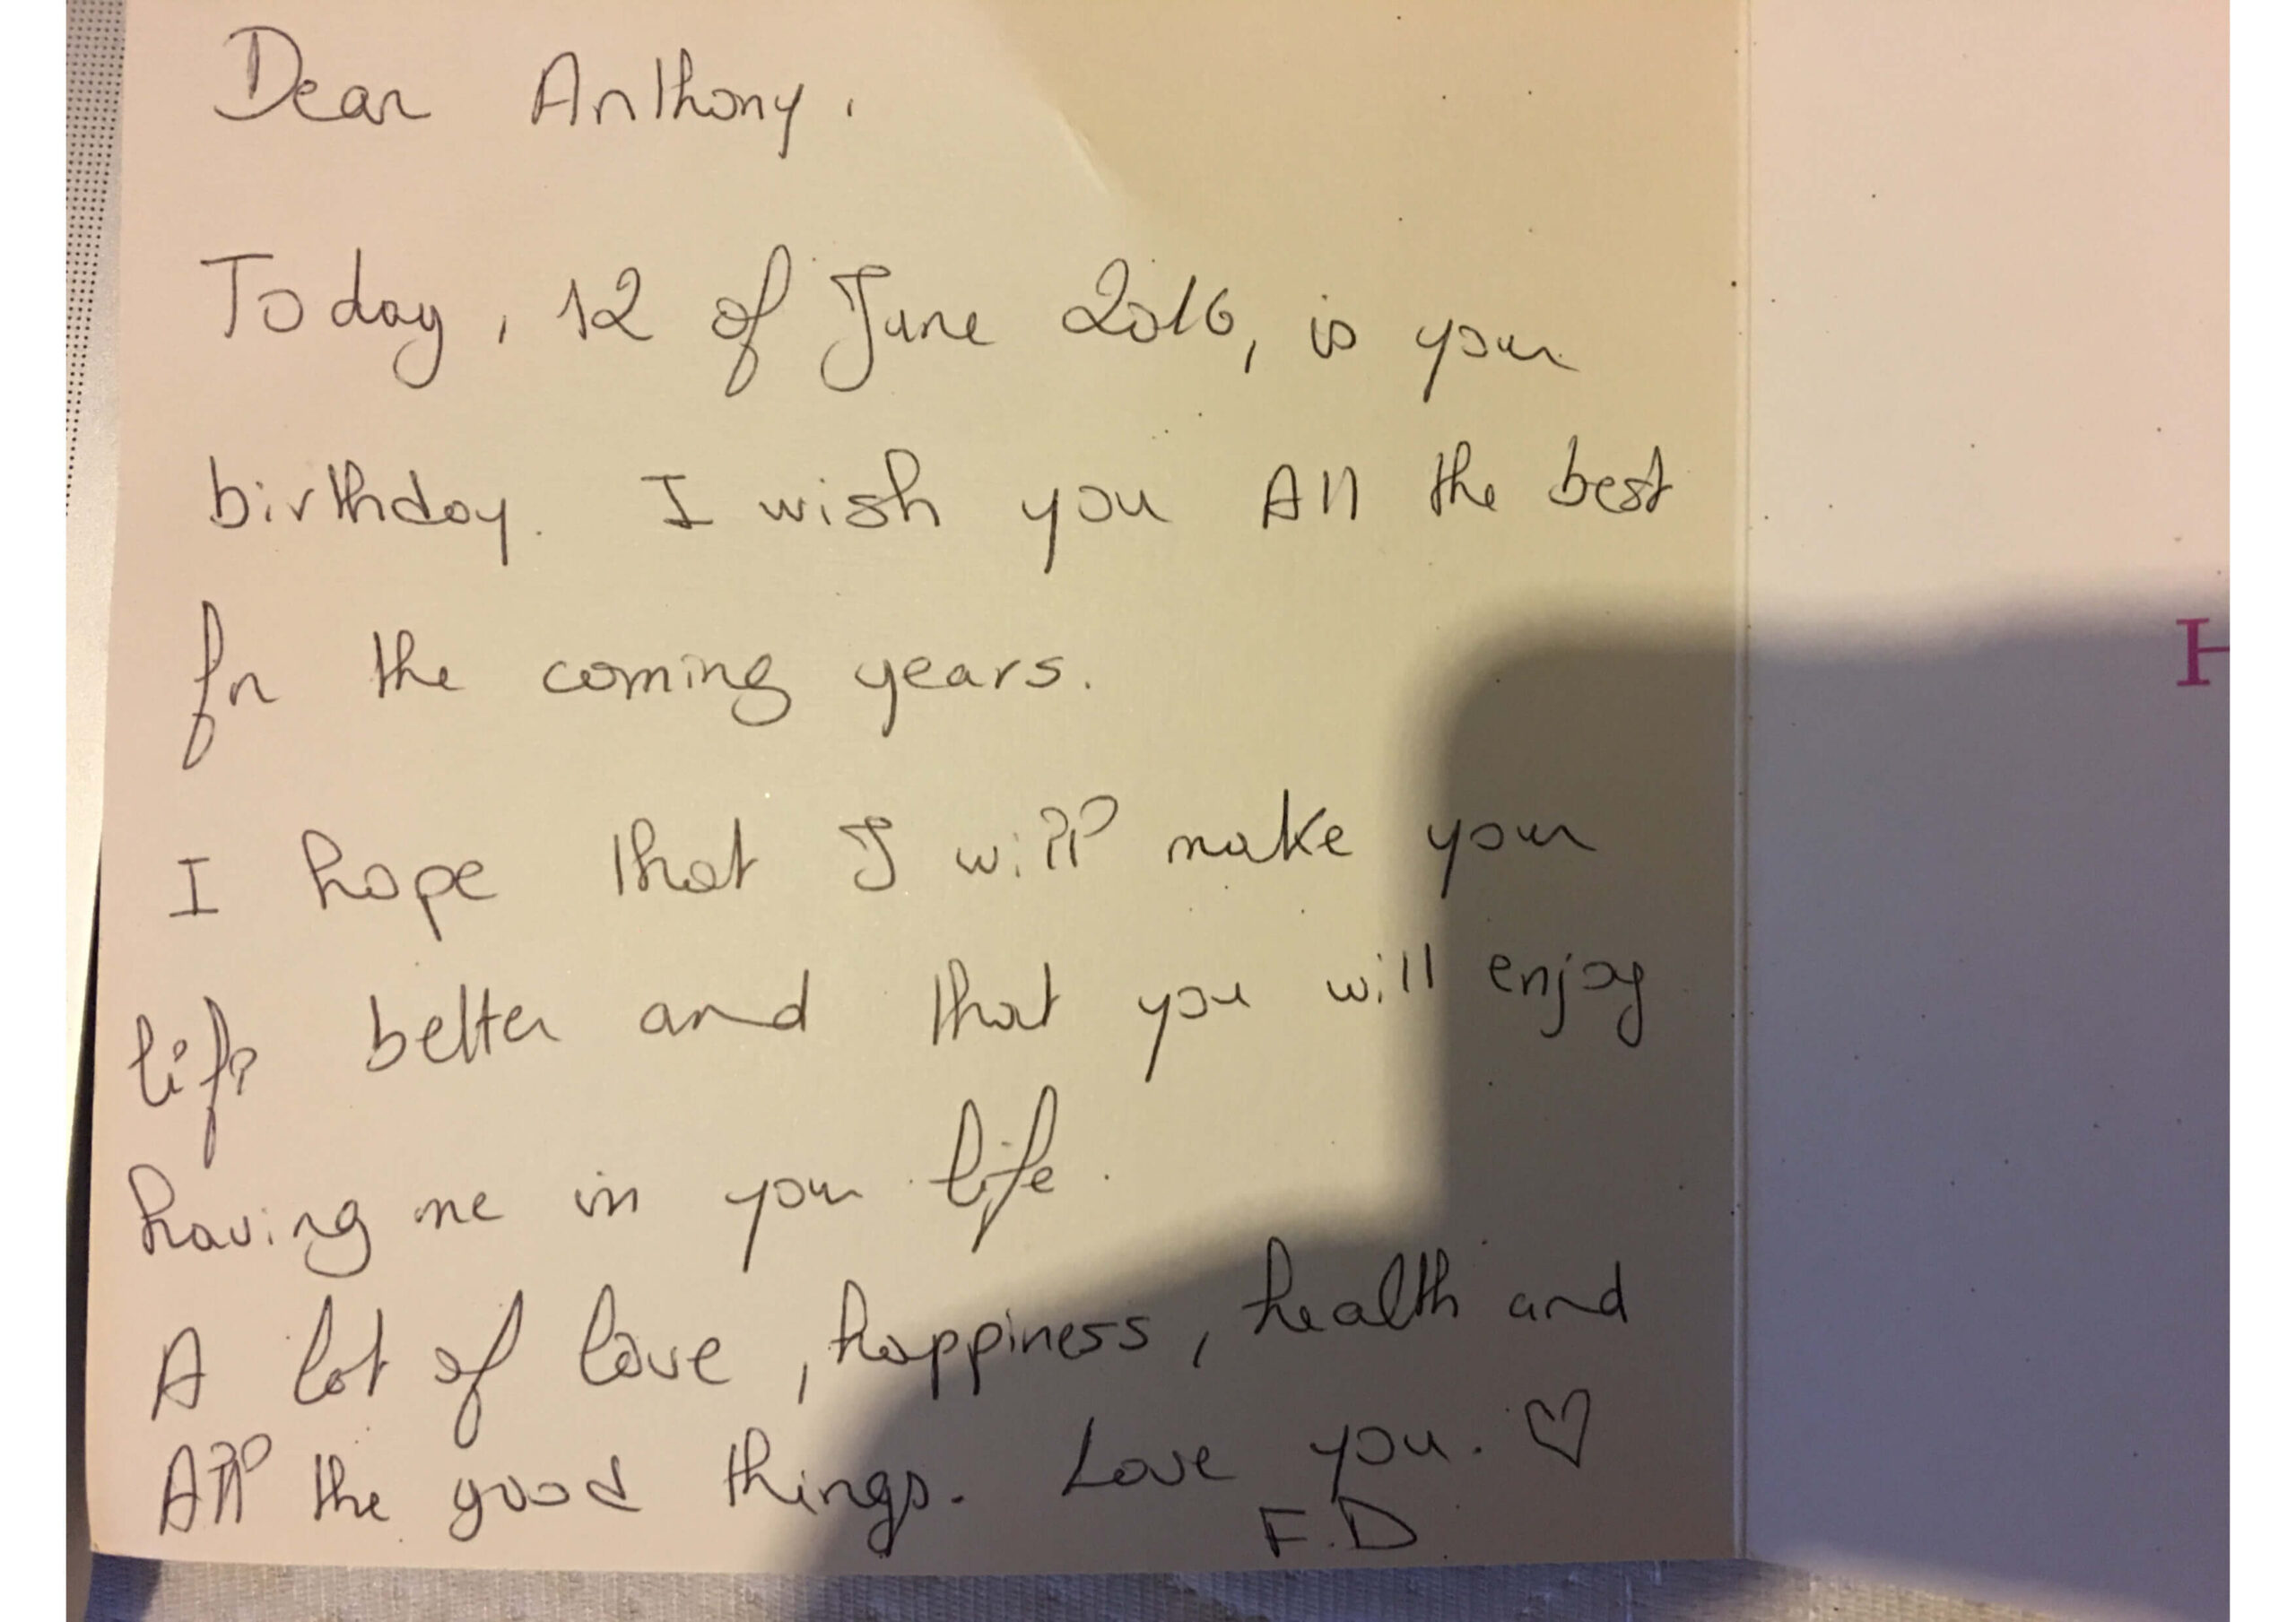 Dear Anthony,
Today, 12 of June 2016, is your
birthday. I wish you All the best
for the coming years.
I hope that I will make your
life better and that you will enjoy
having me in your life.
A lot of love, happiness, health and
All the good things. Love you. ♡
F.D
H